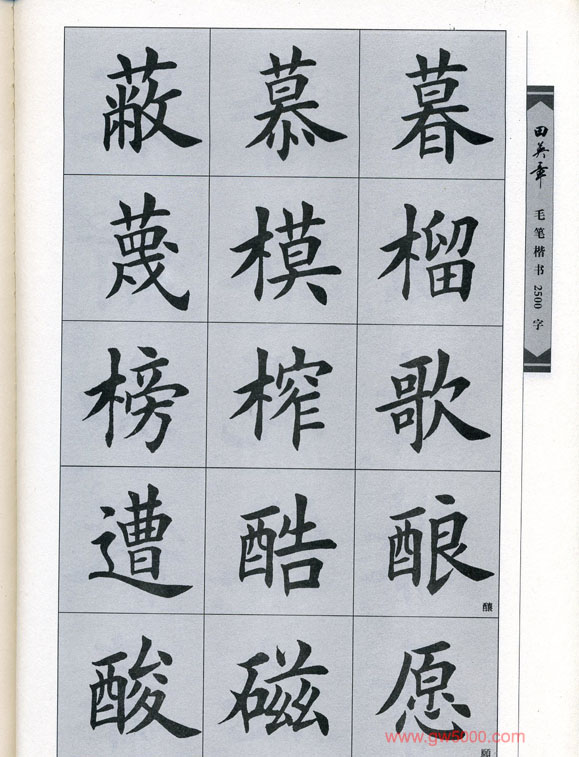 蔽 慕 暮
蔑 模 榴
榜 榨 歌
遭 酷 酿
釀
酸 磁 愿
願
田英章
毛笔楷书2500字
www.gw5000.com